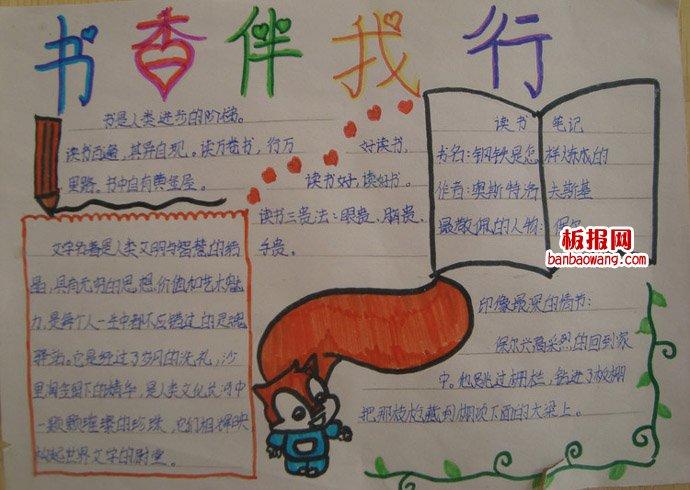 书香伴我行
书是人类进步的阶梯。
读书百遍，其异自现。读万卷书，行万
里路。书中自有黄金屋。
好读书，
读书好，读好书。
读书三贵法：眼贵、脑贵、
手贵。
读书 笔记
书名：钢铁是怎样炼成的
作者：奥斯特洛夫斯基
最敬佩的人物：保尔
板报网
banbaowang.com
文学名著是人类文明与智慧的结
晶，具有无穷的思想价值和艺术魅
力，是每个人一生中都不应错过的灵魂
驿站。它是经过了岁月的洗礼，沙
里淘金留下的精华，是人类文化长河中
一颗颗璀璨的珍珠，它们相辉映
构起世界文学的殿堂。
印像最深的情节：
保尔兴高采烈的回到家
中。他跳过栅栏，钻进了板棚
把那枝枪藏到棚顶下面的大梁上。